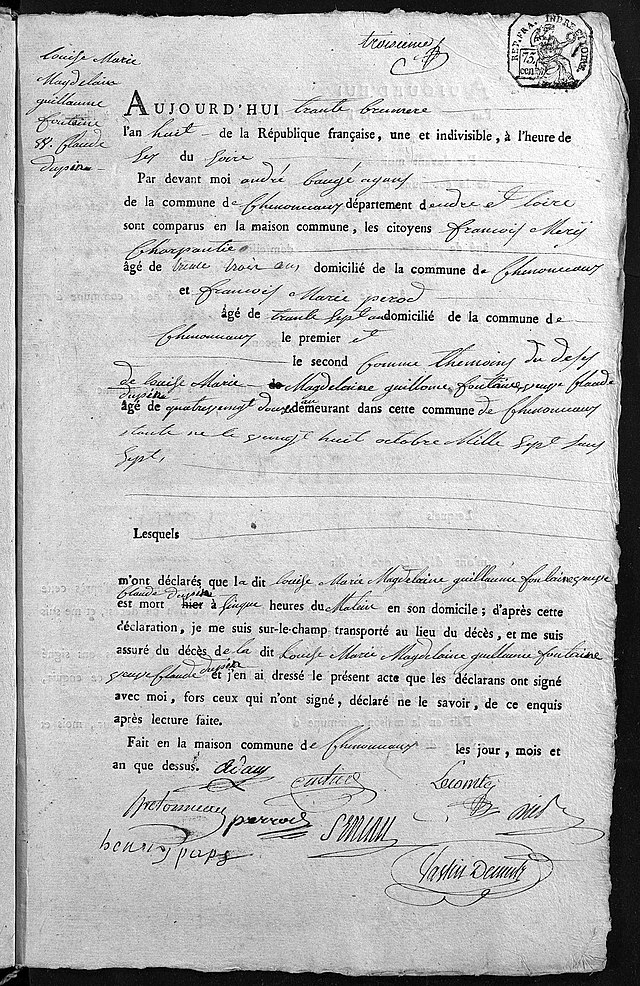 troisieme
REP. FRA. INDRE ET LOIRE
75
cent.
Louise Marie
Magdelaine
guillaume
fontaine
Ve. Claude
dupin
AUJOURD'HUI trante brumere
l'an huit de la République française, une et indivisible, à l'heure de
six du soire
Par devant moi andré baugé agent
de la commune de Chenonceaux département dendre et loire
sont comparus en la maison commune, les citoyens francois Merÿ
Charpantie
âgé de trente trois ans domicilié de la commune de Chenonceaux
et francois Marie perod
âgé de trante sept an domicilié de la commune de
Chenonceaux le premier et
le second comme themoins du deses
de louise Marie Magdelaine guillaume fontaine veuve Claude
dupin
âgé de quatre vingt douze an demeurant dans cette commune de Chenonceaux
ne le vingt huit octobre Mille sept sans
sept,
Lesquels
m'ont déclarés que la dit louise Marie Magdelaine guillaume fontaine veuve
Claude dupin
est mort hier à sinque heures du Matain en son domicile ; d'après cette
déclaration, je me suis sur-le-champ transporté au lieu du décès, et me suis
assuré du décès de la dit Louise Marie Magdelaine guillaume fontaine
veuve Claude dupin et j'en ai dressé le présent acte que les déclarans ont signé
avec moi, fors ceux qui n'ont signé, déclaré ne le savoir, de ce enquis
après lecture faite.
Fait en la maison commune de Chenonceaux les jour, mois et
an que dessus.
Lecomte
perrod